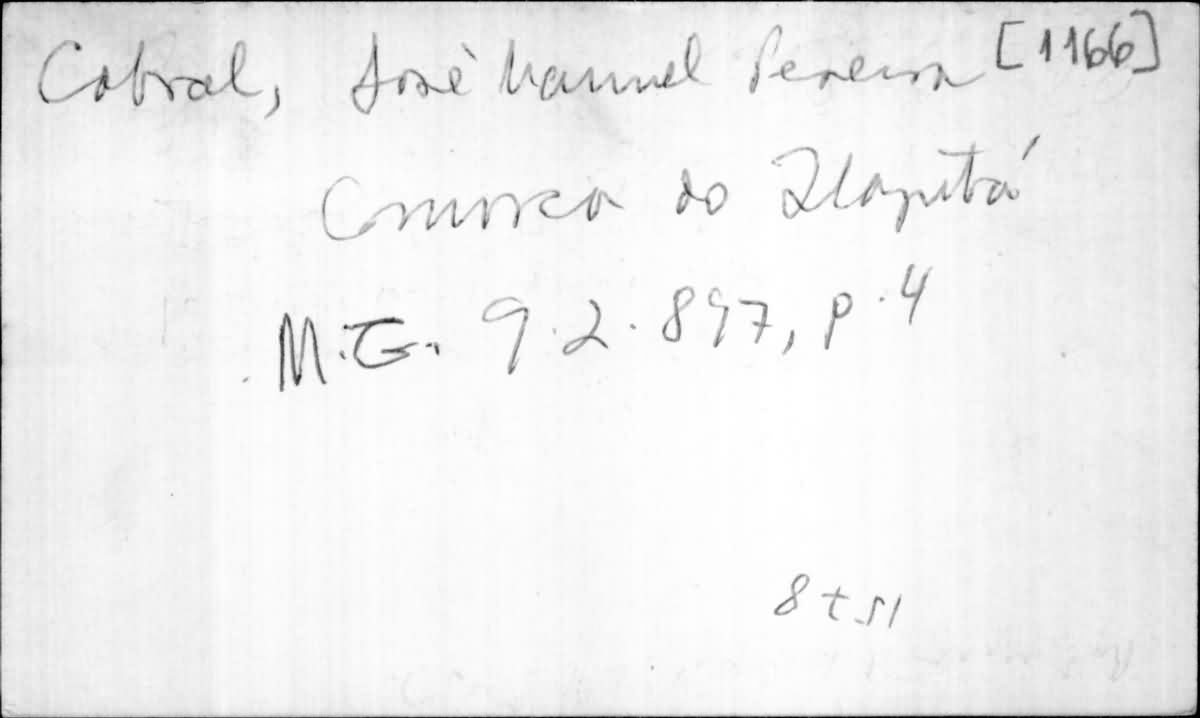 Cabral, José Manuel Pereira [1166]
Comarca do
M.G. 9.2.897, p.4
8 t